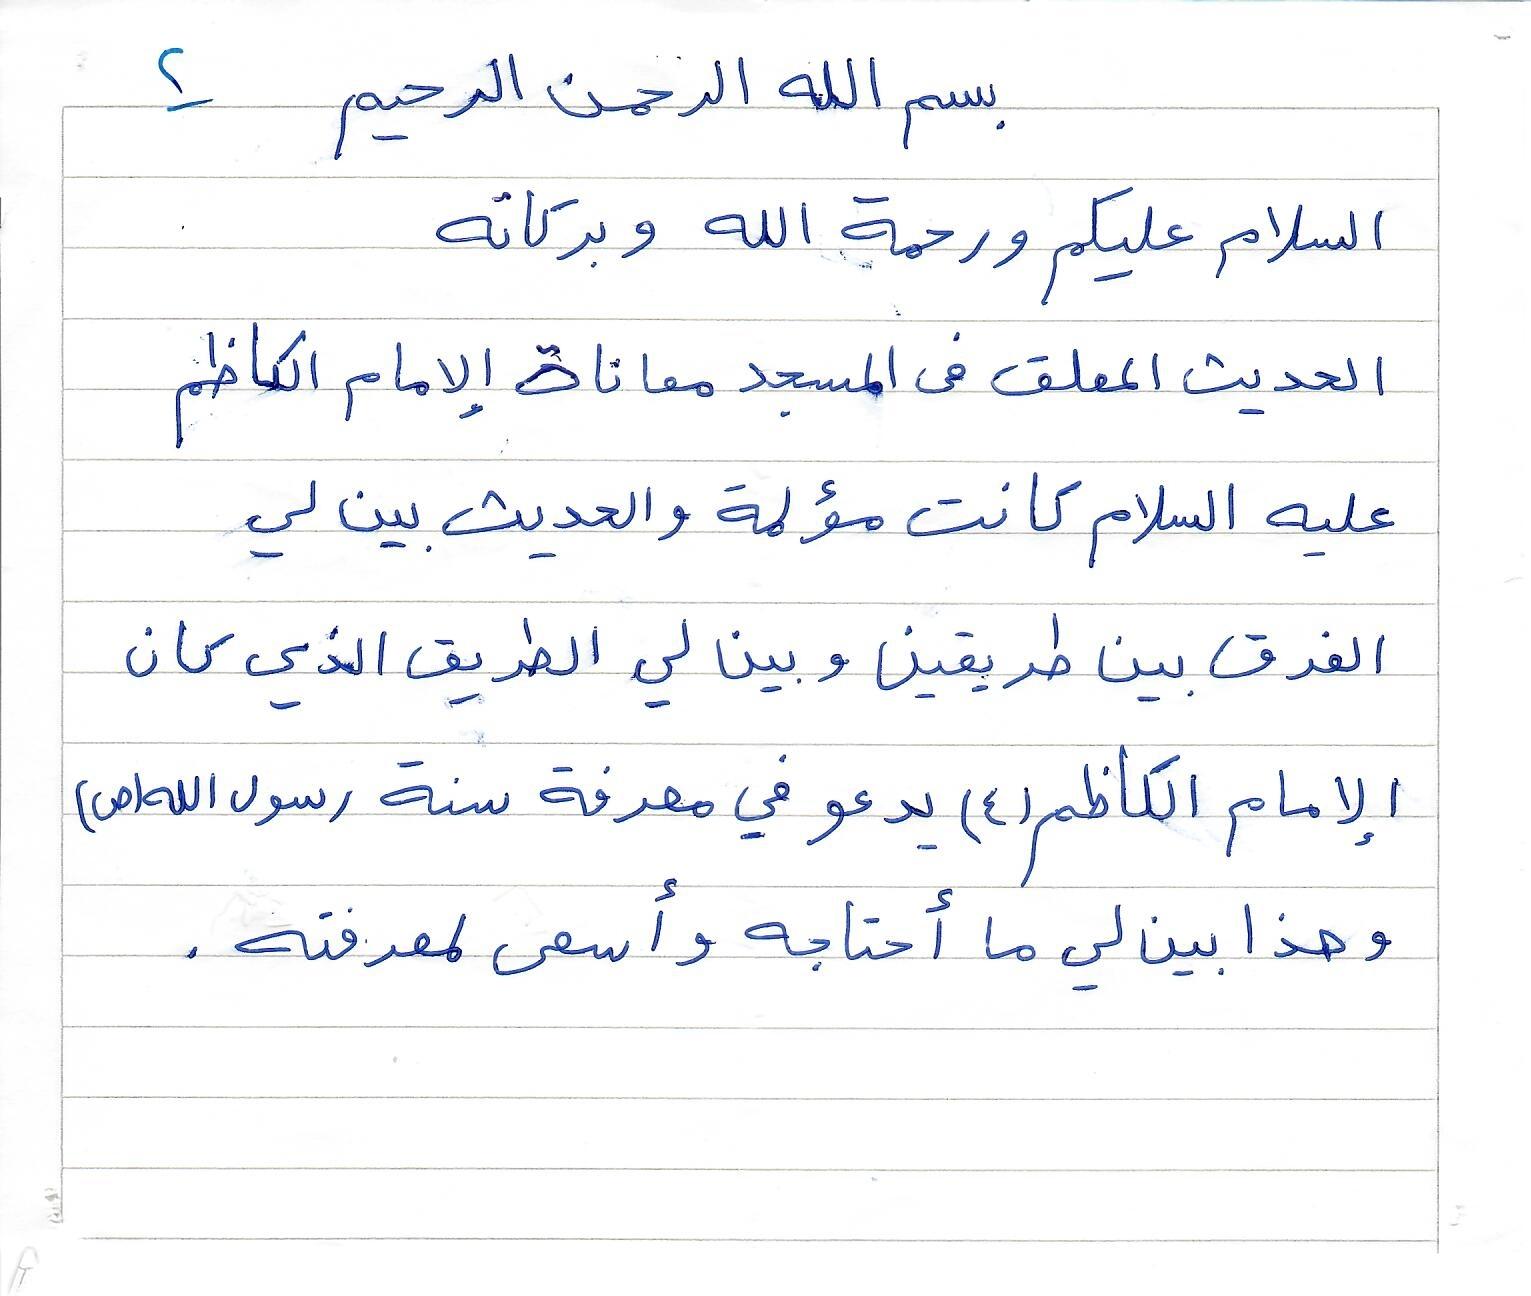 ٢
بسم الله الرحمن الرحيم
السلام عليكم ورحمة الله وبركاته
الحديث المعلق في المسجد معاناة الإمام الكاظم
عليه السلام كانت مؤلمة والحديث بين لي
الفرق بين طريقين وبين لي الطريق الذي كان
الإمام الكاظم (ع) يدعو في معرفة سنة رسول الله (ص)
وهذا بين لي ما أحتاجه وأسعى لمعرفته .